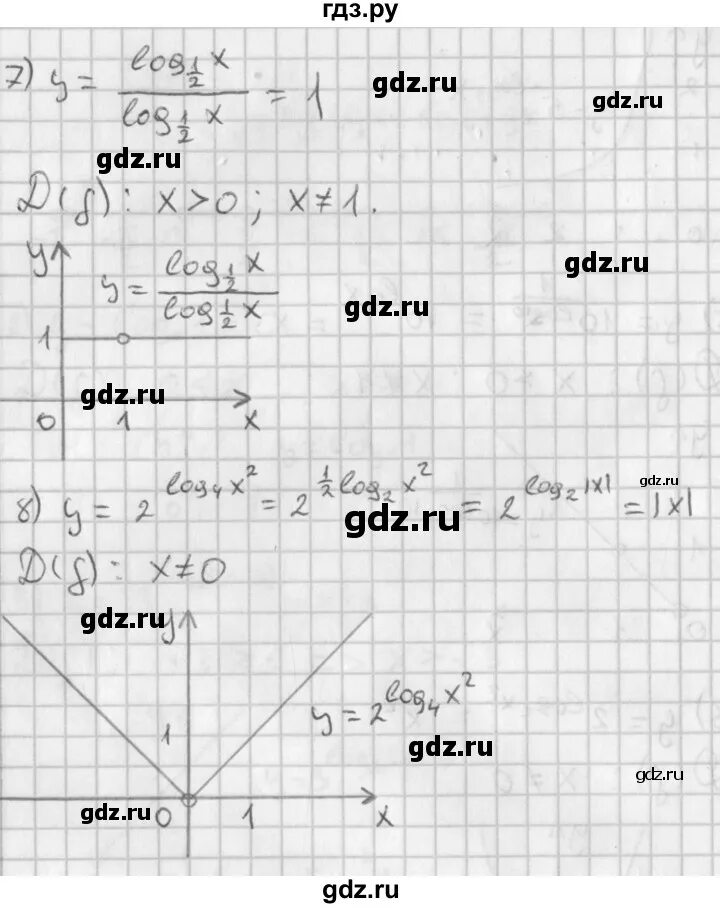 гдз.ру
7) y = log_{1/2} x / log_{1/2} x = 1
gdz.ru
gdz.ru
gdz.ru
D(f): x>0; x≠1.
gdz.ru
y
y = log_{1/2} x / log_{1/2} x
gdz.ru
1
gdz.ru
0 1 x
8) y = 2^{log_4 x^2} = 2^{1/2 log_2 x^2} = 2^{log_2 |x|} = |x|
gdz.ru
gdz.ru
D(f): x≠0
gdz.ru
y
y = 2^{log_4 x^2}
1
gdz.ru
gdz.ru
gdz.ru
0 1 x
gdz.ru